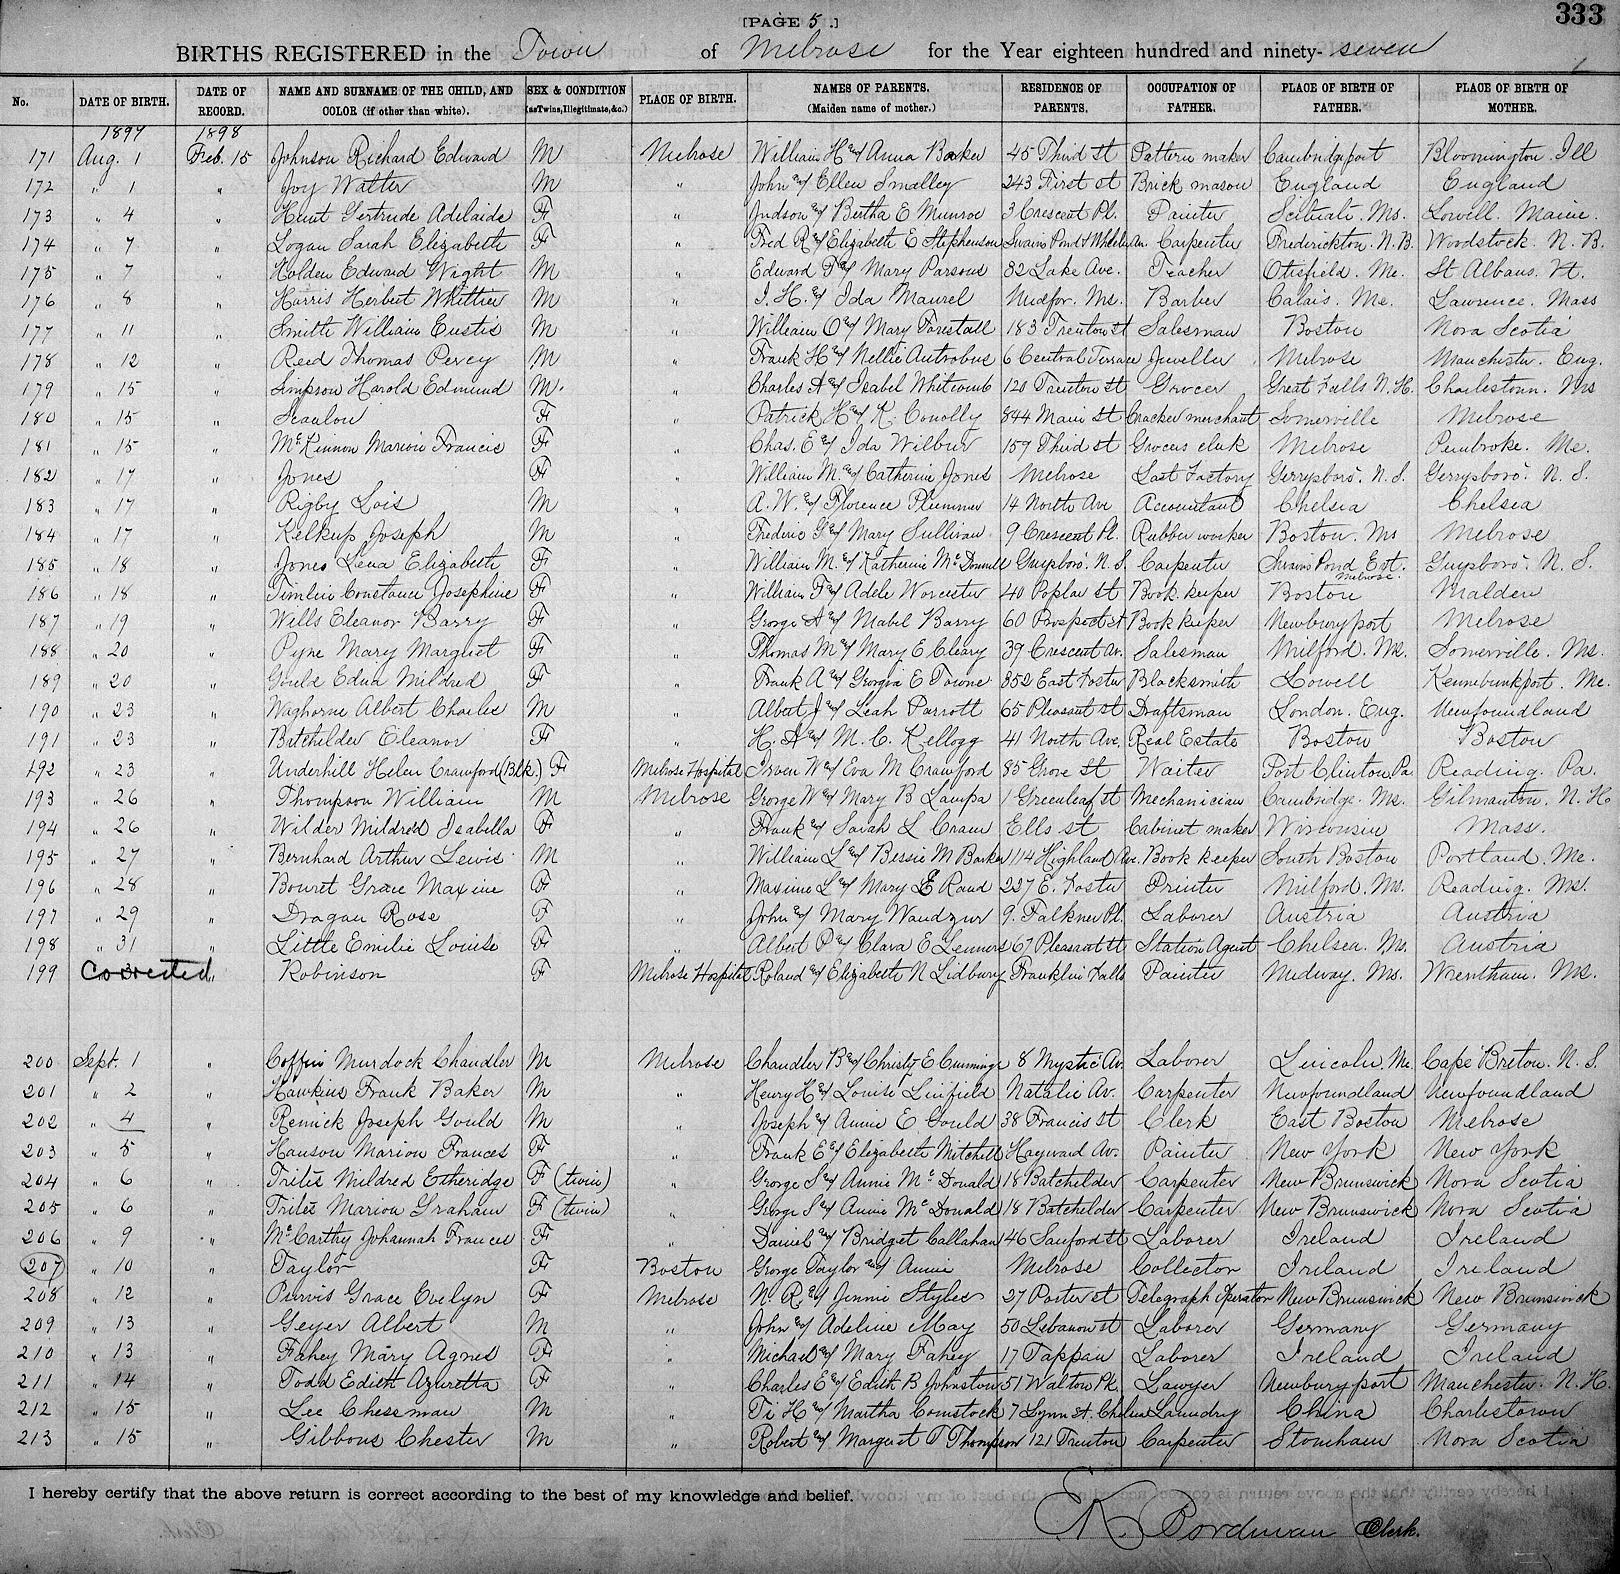 [PAGE 5.]
333
BIRTHS REGISTERED in the Town of Melrose for the Year eighteen hundred and ninety-seven
No. DATE OF BIRTH. DATE OF RECORD. NAME AND SURNAME OF THE CHILD, AND COLOR (if other than white). SEX & CONDITION (as Twins, Illegitimate, &c.) PLACE OF BIRTH. NAMES OF PARENTS. (Maiden name of mother.) RESIDENCE OF PARENTS. OCCUPATION OF FATHER. PLACE OF BIRTH OF FATHER. PLACE OF BIRTH OF MOTHER.
1897 1898
171 Aug. 1 Feb. 15 Johnson Richard Edward M Melrose William H & Anna Barker 45 Third st Pattern maker Cambridgeport Bloomington. Ill
172 " 1 " Joy Walter M " John & Ellen Smalley 243 First st Brick mason England England
173 " 4 " Hunt Gertrude Adelaide F " Judson & Bertha E Munroe 3 Crescent Pl. Painter Scituate. Ms. Lowell. Maine.
174 " 7 " Logan Sarah Elizabeth F " Fred R & Elizabeth E Stephenson Swains Pond & Wheeler Av. Carpenter Frederickton. N. B. Woodstock. N. B.
175 " 7 " Holden Edward Wight M " Edward F & Mary Parsons 32 Lake Ave. Teacher Otisfield. Me. St Albans. Vt.
176 " 8 " Harris Herbert Whittier M " I. H. & Ida Maurel Medfor. Ms. Barber Calais. Me. Lawrence. Mass
177 " 11 " Smith William Eustis M " William O & Mary Forestall 183 Trenton st Salesman Boston Nova Scotia
178 " 12 " Reed Thomas Percy M " Frank H & Nellie Antrobus 6 Central Terrace Jeweller Melrose Manchester. Eng.
179 " 15 " Simpson Harold Edmund M. " Charles A & Isabel Whitcomb 120 Trenton st Grocer Great Falls N. H. Charlestown. Ms
180 " 15 " Scanlon F " Patrick H & K. Conolly 844 Main st Cracker merchant Somerville Melrose
181 " 15 " McKinnon Marion Francis F " Chas. E & Ida Wilbur 159 Third st Grocers clerk Melrose Pembroke. Me.
182 " 17 " Jones F " William M. & Catherine Jones Melrose Last Factory Gerrysboro'. N. S. Gerrysboro'. N. S.
183 " 17 " Rigby Lois M " A. W. & Florence Plummer 14 North Ave Accountant Chelsea Chelsea
184 " 17 " Kelkup Joseph M " Frederic G & Mary Sullivan 9 Crescent Pl. Rubber worker Boston. Ms Melrose
185 " 18 " Jones Lena Elizabeth F " William M. & Katherine McDonnell Guysboro'. N. S. Carpenter Swains Pond Est. Melrose. Guysboro'. N. S.
186 " 18 " Timlin Constance Josephine F " William F & Adele Worcester 40 Poplar st Book keeper Boston Malden
187 " 19 " Wells Eleanor Barry F " George A & Mabel Barry 60 Prospect st Book keeper Newburyport Melrose
188 " 20 " Pyne Mary Margust F " Thomas M & Mary E Cleary 39 Crescent Av. Salesman Milford. Ms. Somerville. Ms.
189 " 20 " Gould Edna Mildred F " Frank A & Georgia E Towne 352 East Foster Blacksmith Lowell Kennebunkport. Me.
190 " 23 " Waghorne Albert Charles M " Albert J & Leah Parrott 65 Pleasant st Draftsman London. Eng. Newfoundland
191 " 23 " Batchelder Eleanor F " H. A & M. C. Kellogg 41 North Ave. Real Estate Boston Boston
192 " 23 " Underhill Helen Crawford (Blk.) F Melrose Hospital Irven W & Eva M Crawford 85 Grove st Waiter Port Clinton Pa Reading. Pa.
193 " 26 " Thompson William M Melrose George W & Mary B Lampa 1 Greenleaf st Mechanician Cambridge. Ms. Gilmanton. N. H.
194 " 26 " Wilder Mildred Isabella F " Frank & Sarah L Cram Ells st Cabinet maker Wisconsin Mass.
195 " 27 " Bernhard Arthur Lewis M " William L & Bessie M Barker 114 Highland Av. Book keeper South Boston Portland. Me.
196 " 28 " Bouret Grace Maxine F " Maxime L & Mary E Rand 227 E. Foster Printer Milford. Ms. Reading. Ms.
197 " 29 " Dragan Rose F " John & Mary Wandzur 9. Falkner Pl. Laborer Austria Austria
198 " 31 " Little Emilie Louise F " Albert P & Clara E Lenners 67 Pleasant st Station Agent Chelsea. Ms. Austria
199 Corrected " Robinson F Melrose Hospital Roland & Elizabeth N Lidbury Franklin Falls Painter Medway. Ms. Wrentham. Ms.
200 Sept. 1 " Coffin Murdock Chandler M Melrose Chandler B & Christy E Cummings 8 Mystic Av. Laborer Lincoln. Me. Cape Breton. N. S.
201 " 2 " Hawkins Frank Baker M " Henry H & Louise Linfield Natalie Av. Carpenter Newfoundland Newfoundland
202 " 4 " Renick Joseph Gould M " Joseph & Annie E Gould 38 Francis st Clerk East Boston Melrose
203 " 5 " Hanson Marion Frances F " Frank E & Elizabeth Mitchell Hayward Av. Painter New York New York
204 " 6 " Trites Mildred Etheridge F (twin) " George S & Annie McDonald 18 Batchelder Carpenter New Brunswick Nova Scotia
205 " 6 " Trites Marion Graham F (twin) " George S & Annie McDonald 18 Batchelder Carpenter New Brunswick Nova Scotia
206 " 9 " McCarthy Johannah Frances F " Daniel & Bridget Callahan 46 Sanford st Laborer Ireland Ireland
207 " 10 " Taylor F Boston George Taylor & Annie Melrose Collector Ireland Ireland
208 " 12 " Purvis Grace Evelyn F Melrose N. R. & Jennie Styles 27 Porter st Telegraph Operator New Brunswick New Brunswick
209 " 13 " Geyer Albert M " John & Adeline May 50 Lebanon st Laborer Germany Germany
210 " 13 " Fahey Mary Agnes F " Michael & Mary Fahey 17 Tappan Laborer Ireland Ireland
211 " 14 " Todd Edith Azuretta F " Charles E & Edith B Johnston 51 Walton Pk. Lawyer Newburyport Manchester. N. H.
212 " 15 " Lee Chessman M " Ti H & Martha Comstock 7 Lynn st. Chelsea Laundry China Charlestown
213 " 15 " Gibbons Chester M " Robert & Margaret T Thompson 121 Trenton Carpenter Stoneham Nova Scotia
I hereby certify that the above return is correct according to the best of my knowledge and belief.
Clerk.